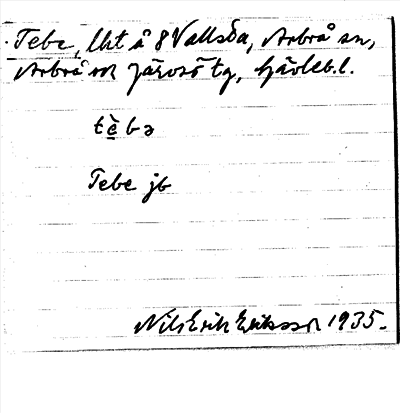 Tebe, lht å 8 Vallsta, Arbrå sn,
Arbrå och Järvsö tg, Gävleb.l.
tè̱bə
Tebe jb
Nils Erik Eriksson 1935.